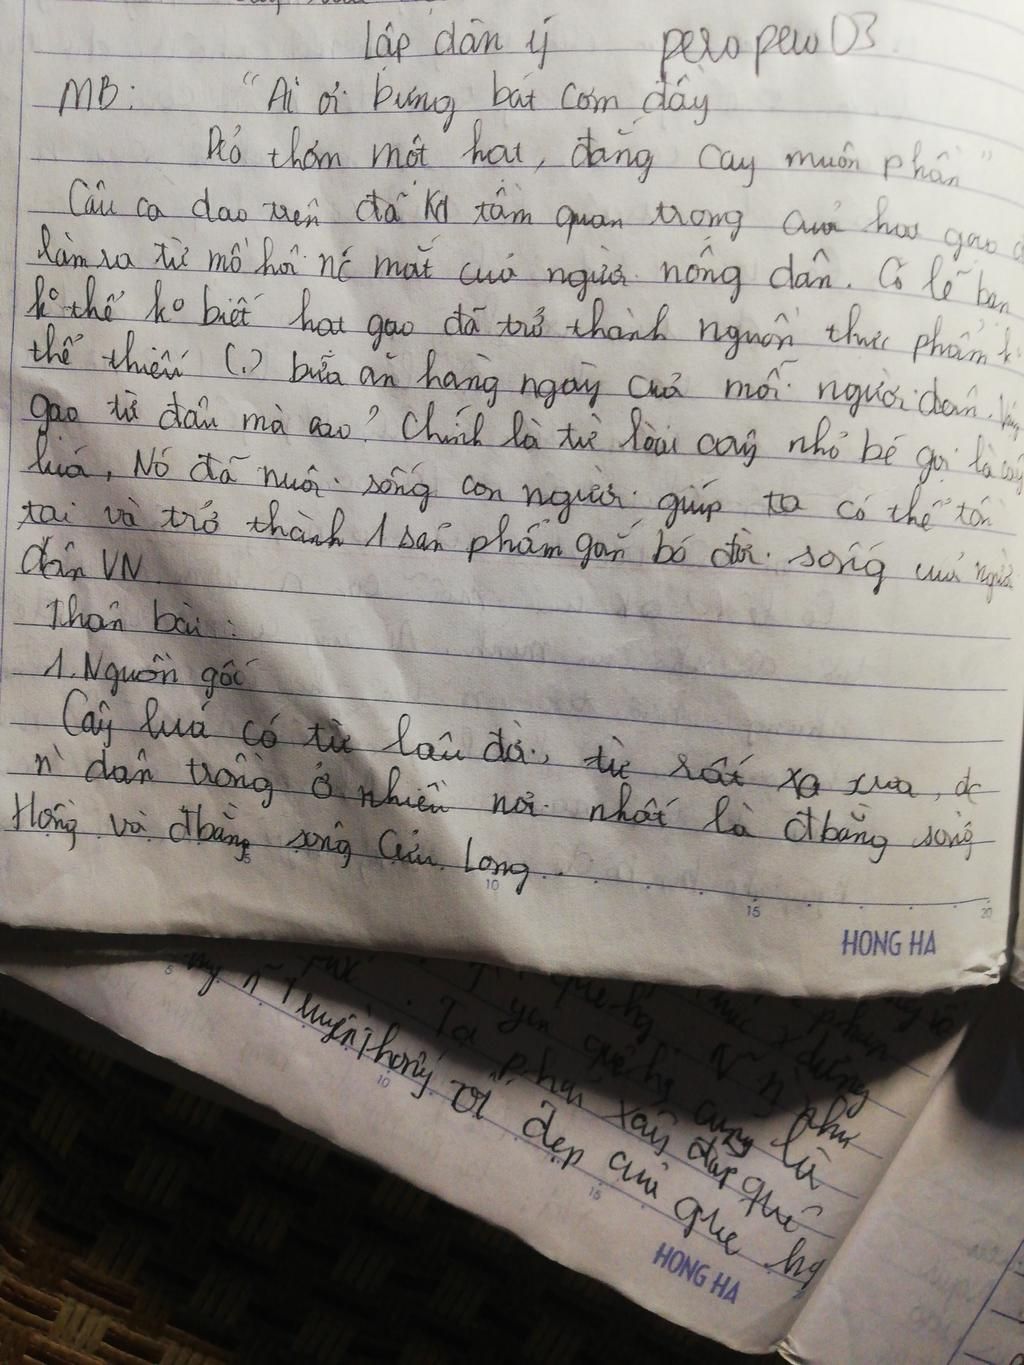 Lập dàn ý peropero03
MB: "Ai ơi bưng bát cơm đầy
Dẻo thơm một hạt, đắng cay muôn phần"
Câu ca dao trên đã KĐ tầm quan trọng của hạt gạo
làm ra từ mồ hôi nc mắt của người nông dân. Có lẽ bạn
ko thể ko biết hạt gạo đã trở thành nguồn thực phẩm k
thể thiếu (.) bữa ăn hàng ngày của mỗi người dân. Vậy
gạo từ đâu mà ? Chính là từ loài cây nhỏ bé gọi là cây
lúa, Nó đã nuôi sống con người giúp ta có thể tồn
tại và trở thành 1 sản phẩm gắn bó đời sống của người
dân VN
Thân bài:
1. Nguồn gốc
Cây lúa có từ lâu đời, từ rất xa xưa, đc
n dân trồng ở nhiều nơi nhất là đbằng sông
Hồng và đbằng sông Cửu Long
10 15 20
HONG HA
10 15
Ta phải xây đắp quê
Truyền thống tốt đẹp của quê hg
HONG HA